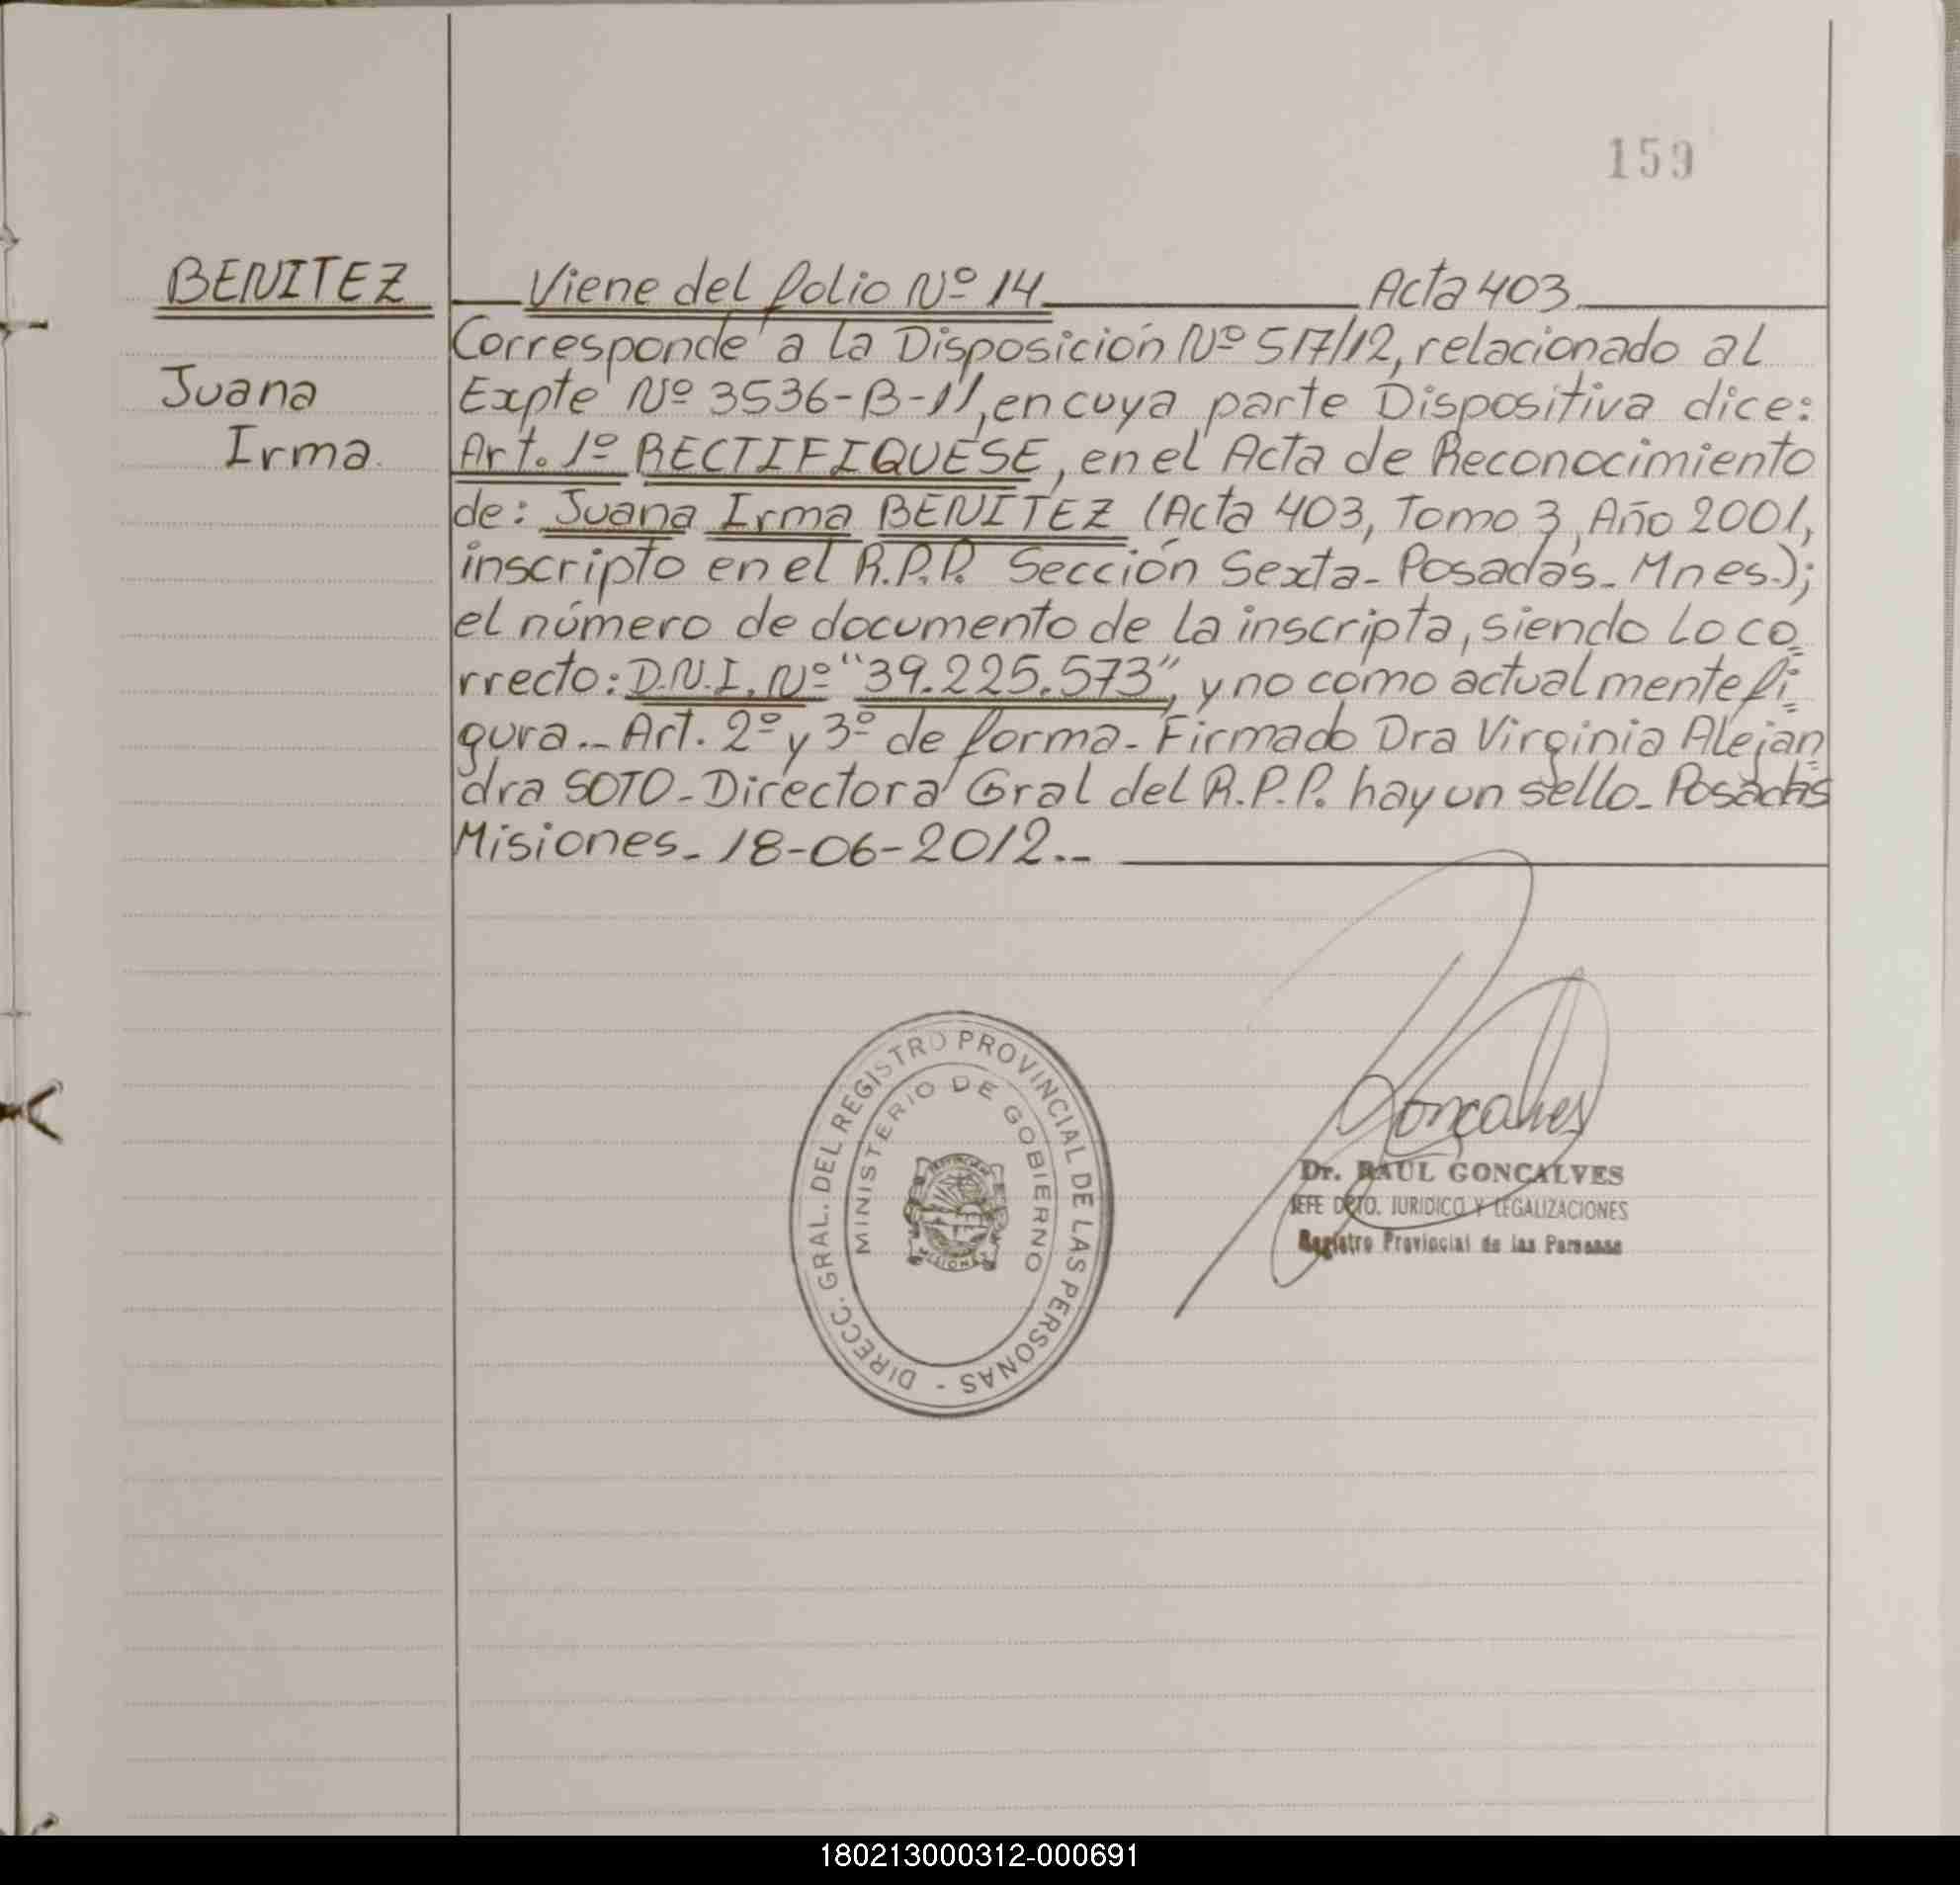 159
BENITEZ
Juana
Irma.
Viene del folio Nº 14 Acta 403
Corresponde a la Disposición Nº 517/12, relacionado al
Expte Nº 3536-B-11, en cuya parte Dispositiva dice:
Art. 1º RECTIFIQUESE, en el Acta de Reconocimiento
de: Juana Irma BENÍTEZ (Acta 403, Tomo 3, Año 2001,
inscripto en el R.P.P. Sección Sexta- Posadas- Mnes.);
el número de documento de la inscripta, siendo lo co
rrecto: D.N.I. Nº "39.225.573", y no como actualmente fi
gura.- Art. 2º y 3º de forma- Firmado Dra Virginia Alejan
dra SOTO- Directora Gral del R.P.P. hay un sello- Posadas
Misiones- 18-06-2012.-
DIRECC. GRAL. DEL REGISTRO PROVINCIAL DE LAS PERSONAS -
MINISTERIO DE GOBIERNO
Goncalves
Dr. RAUL GONCALVES
JEFE DPTO. JURIDICO Y LEGALIZACIONES
Registro Provincial de las Personas
180213000312-000691